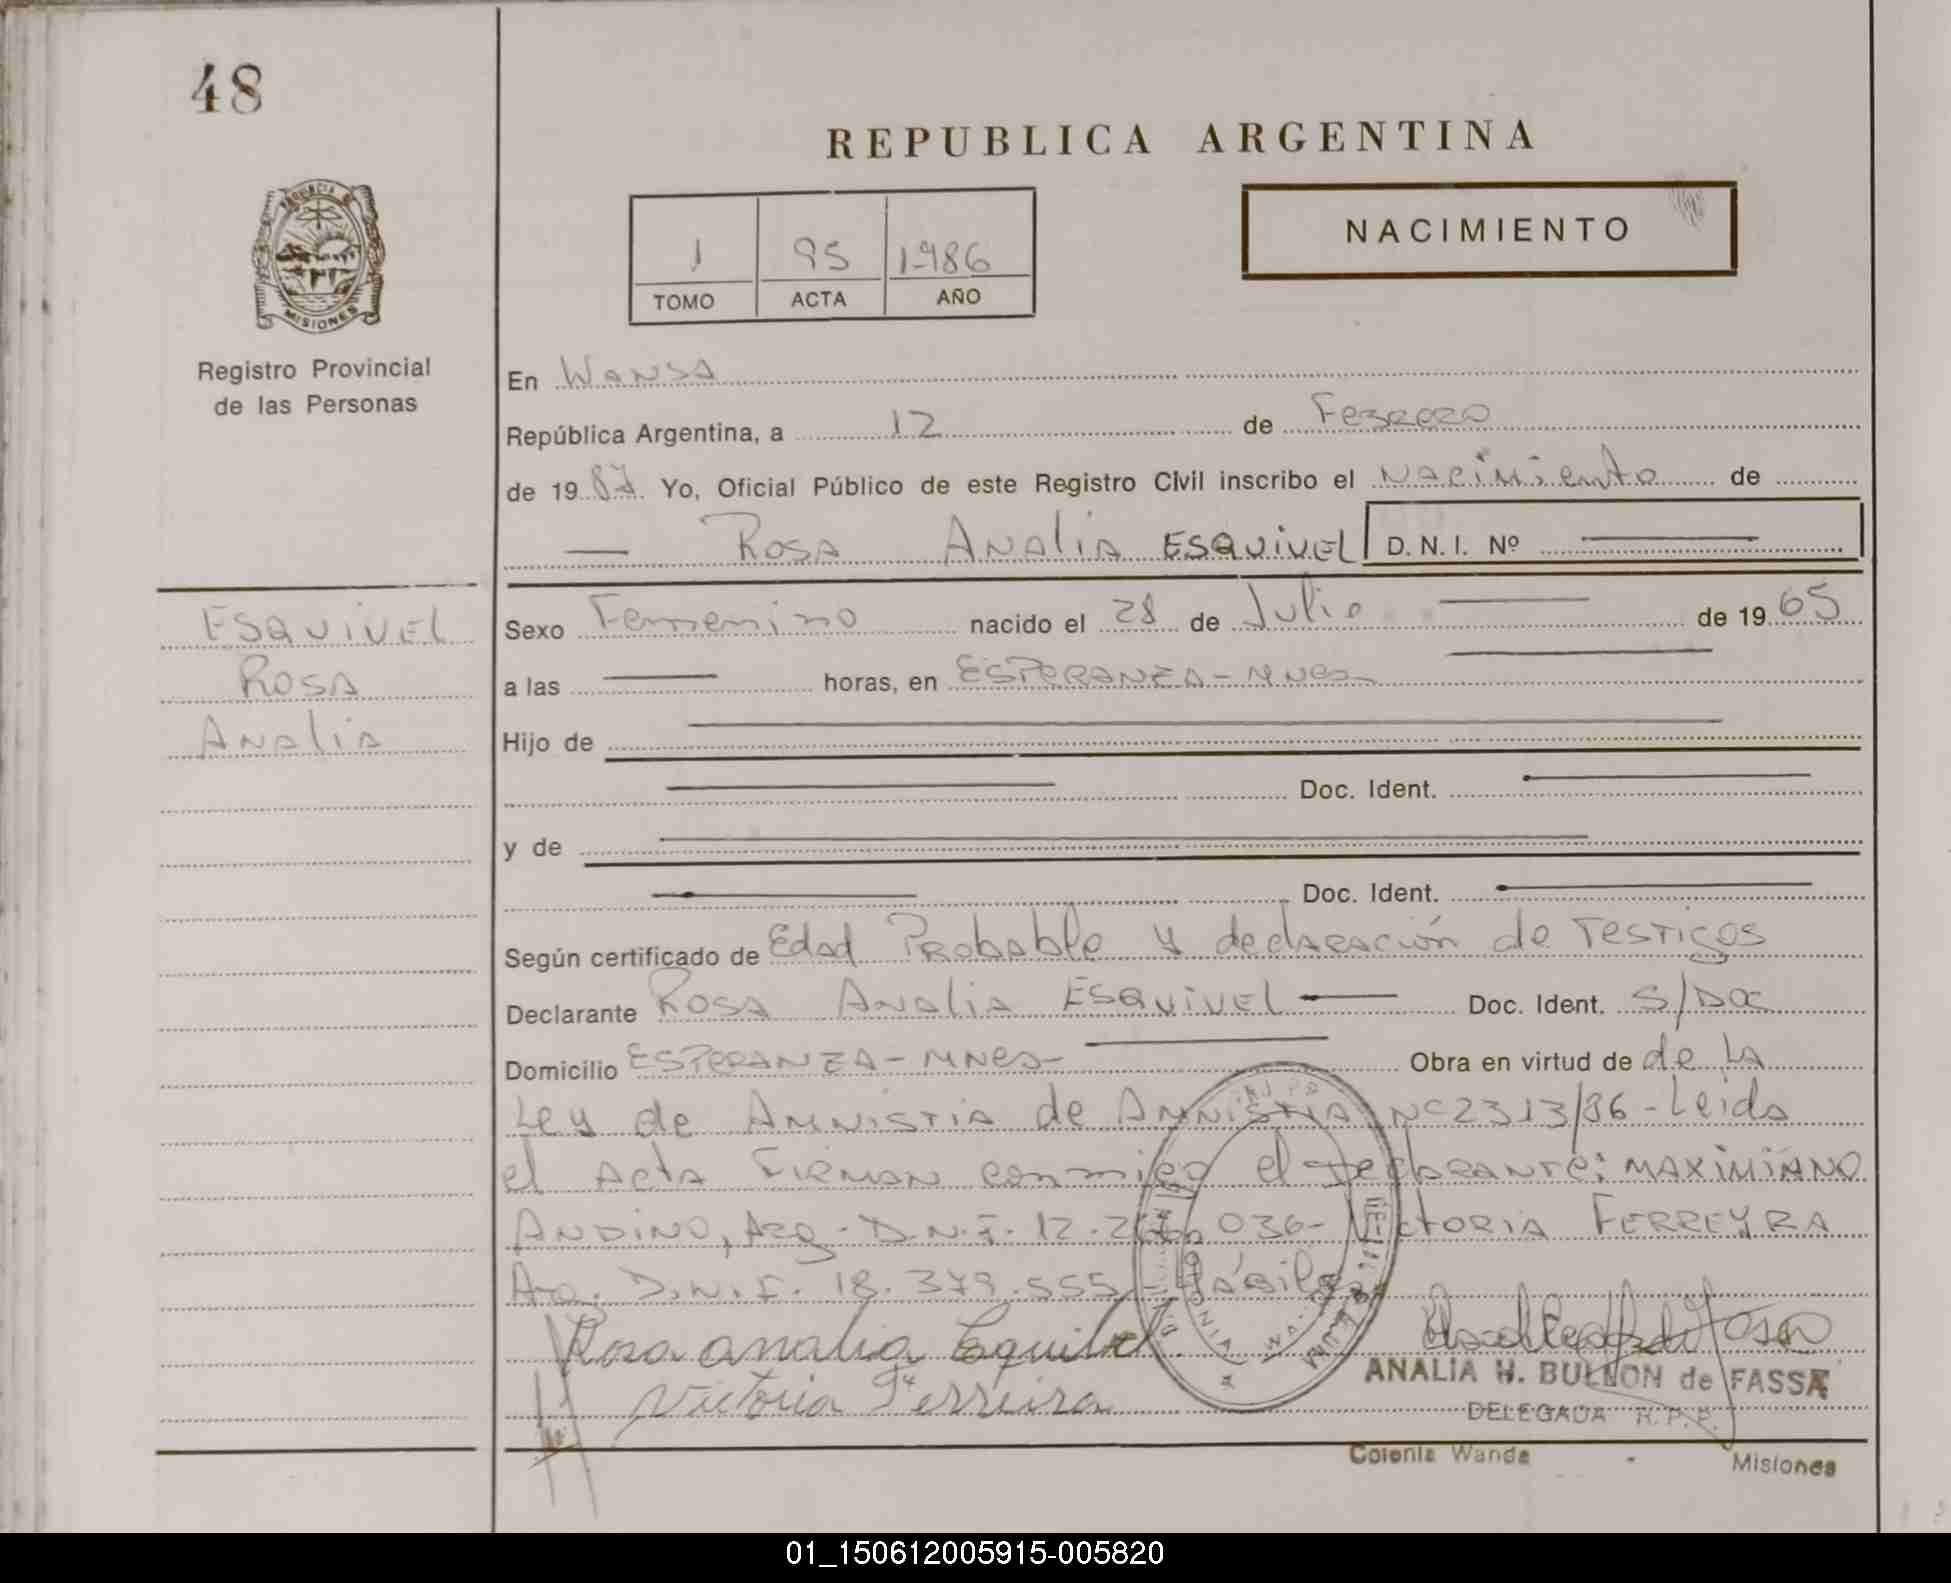 48
REPUBLICA ARGENTINA
NACIMIENTO
1 95 1986
TOMO ACTA AÑO
PROVINCIA DE
MISIONES
Registro Provincial
de las Personas
En Wanda
República Argentina, a 12 de Febrero
de 1987 Yo, Oficial Público de este Registro Civil inscribo el nacimiento de
Rosa Analia ESQUIVEL D.N.I. Nº
ESQUIVEL
Rosa
Analia
Sexo Femenino nacido el 28 de Julio de 1965
a las horas, en ESPERANZA-MNES
Hijo de
Doc. Ident.
y de
Doc. Ident.
Según certificado de Edad Probable y declaración de Testigos
Declarante Rosa Analia ESQUIVEL Doc. Ident. S/Doc
Domicilio ESPERANZA-MNES- Obra en virtud de de la
Ley de Amnistia de Amnistia Nº2313/86-Leida
el Acta Firman conmigo el declarante: MAXIMIANO
ANDINO, Arg. D.N.I. 12. 036- Victoria FERREYRA
Arg. D.N.I. 18.379.555 Hábiles
Rosa analia Equivel
Victoria Ferreira
ANALIA H. BULLON de FASSA
DELEGADA R.P.P.
Colonia Wanda - Misiones
01_150612005915-005820